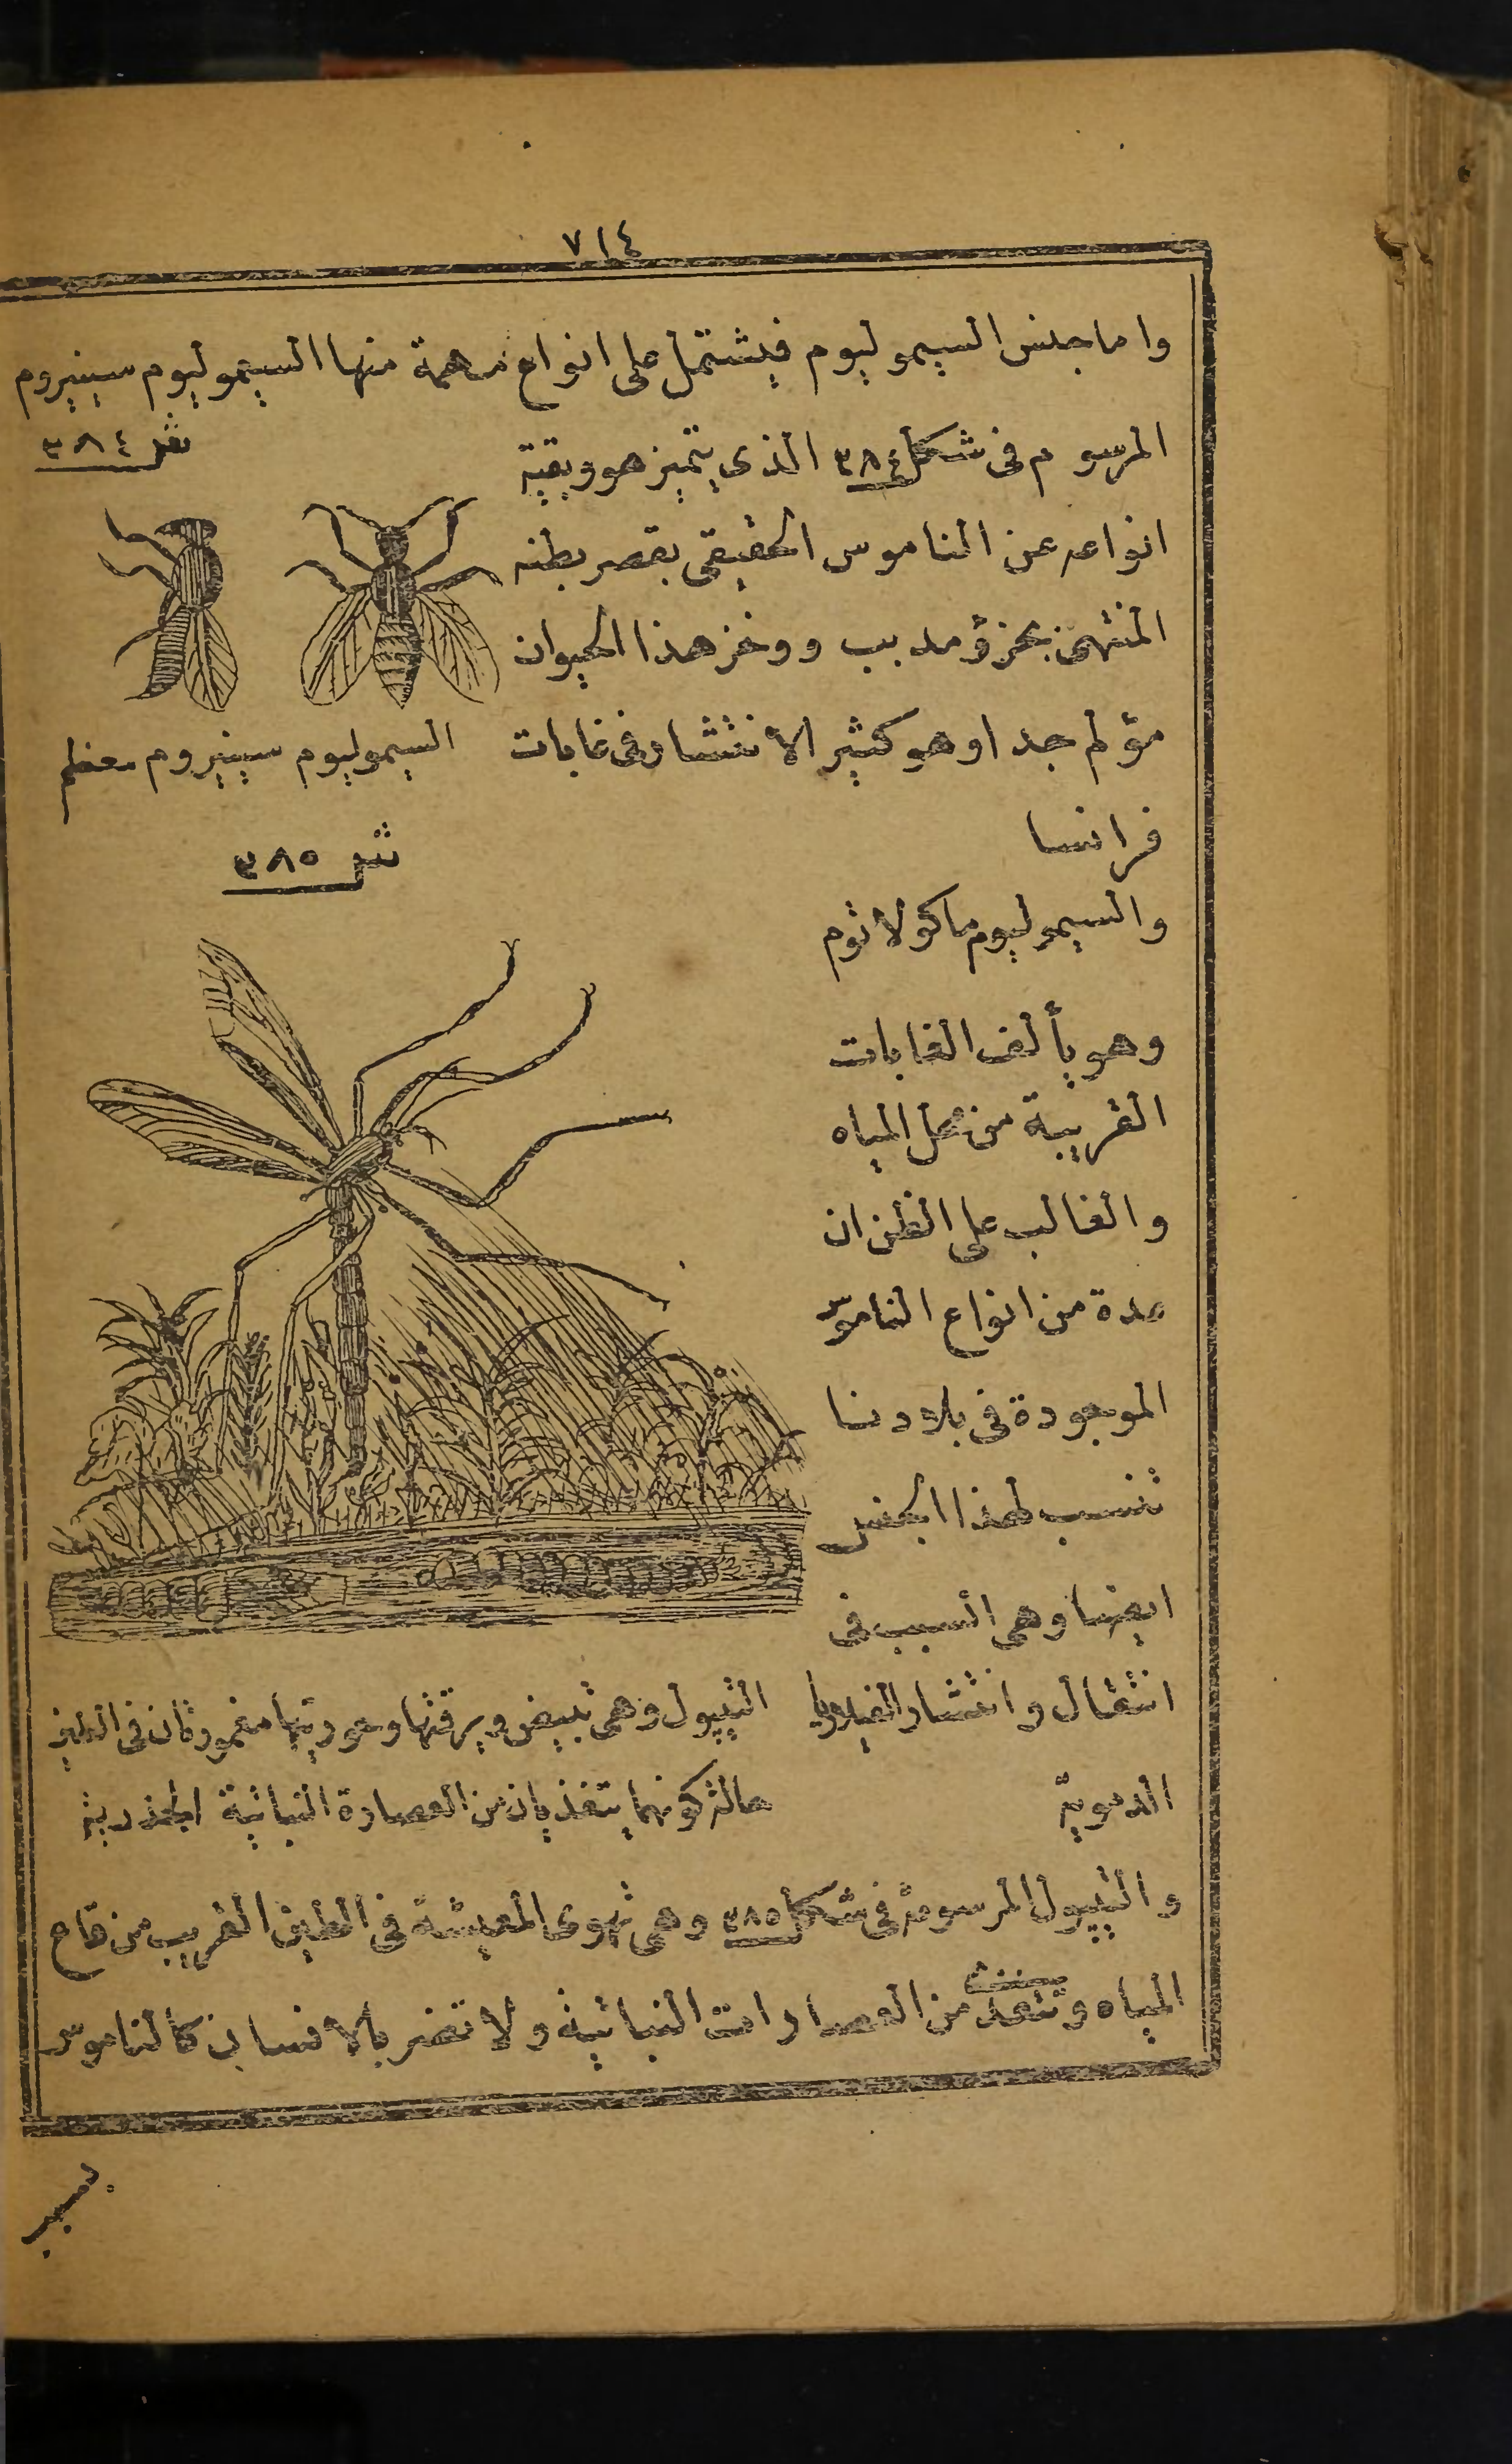 ٧١٤
واما جنس السيموليوم فيشتمل على انواع مهمة منها السيموليوم سينيروم
المرسوم فى شكل ٣٨٤ الذى يتميز هو وبقية
انواعه عن الناموس الحقيقى بقصر بطنه
المنتهى بجزؤ مدبب ووخز هذا الحيوان
مؤلم جدا وهو كثير الانتشار فى غابات
فرانسا
شكل ٣٨٤
السيموليوم سينيروم معظم
والسيموليوم ماكولاتوم
وهو يألف الغابات
القريبة من محل المياه
والغالب على الظن ان
عدة من انواع الناموس
الموجودة فى بلادنا
تنسب لهذا الجنس
ايضا وهى السبب فى
انتقال وانتشار الفيلاريا
الدموية
شكل ٣٨٥
التيپول وهى تبيض ويرقتها وحوريتها مغمورتان فى الطين
حالة كونهما يتغذيان من العصارة النباتية الجذرية
والتيپول المرسومة فى شكل ٣٨٥ وهى تهوى المعيشة فى الطين القريب من قاع
المياه وتتغذى من العصارات النباتية ولا تضر بالانسان كالناموس